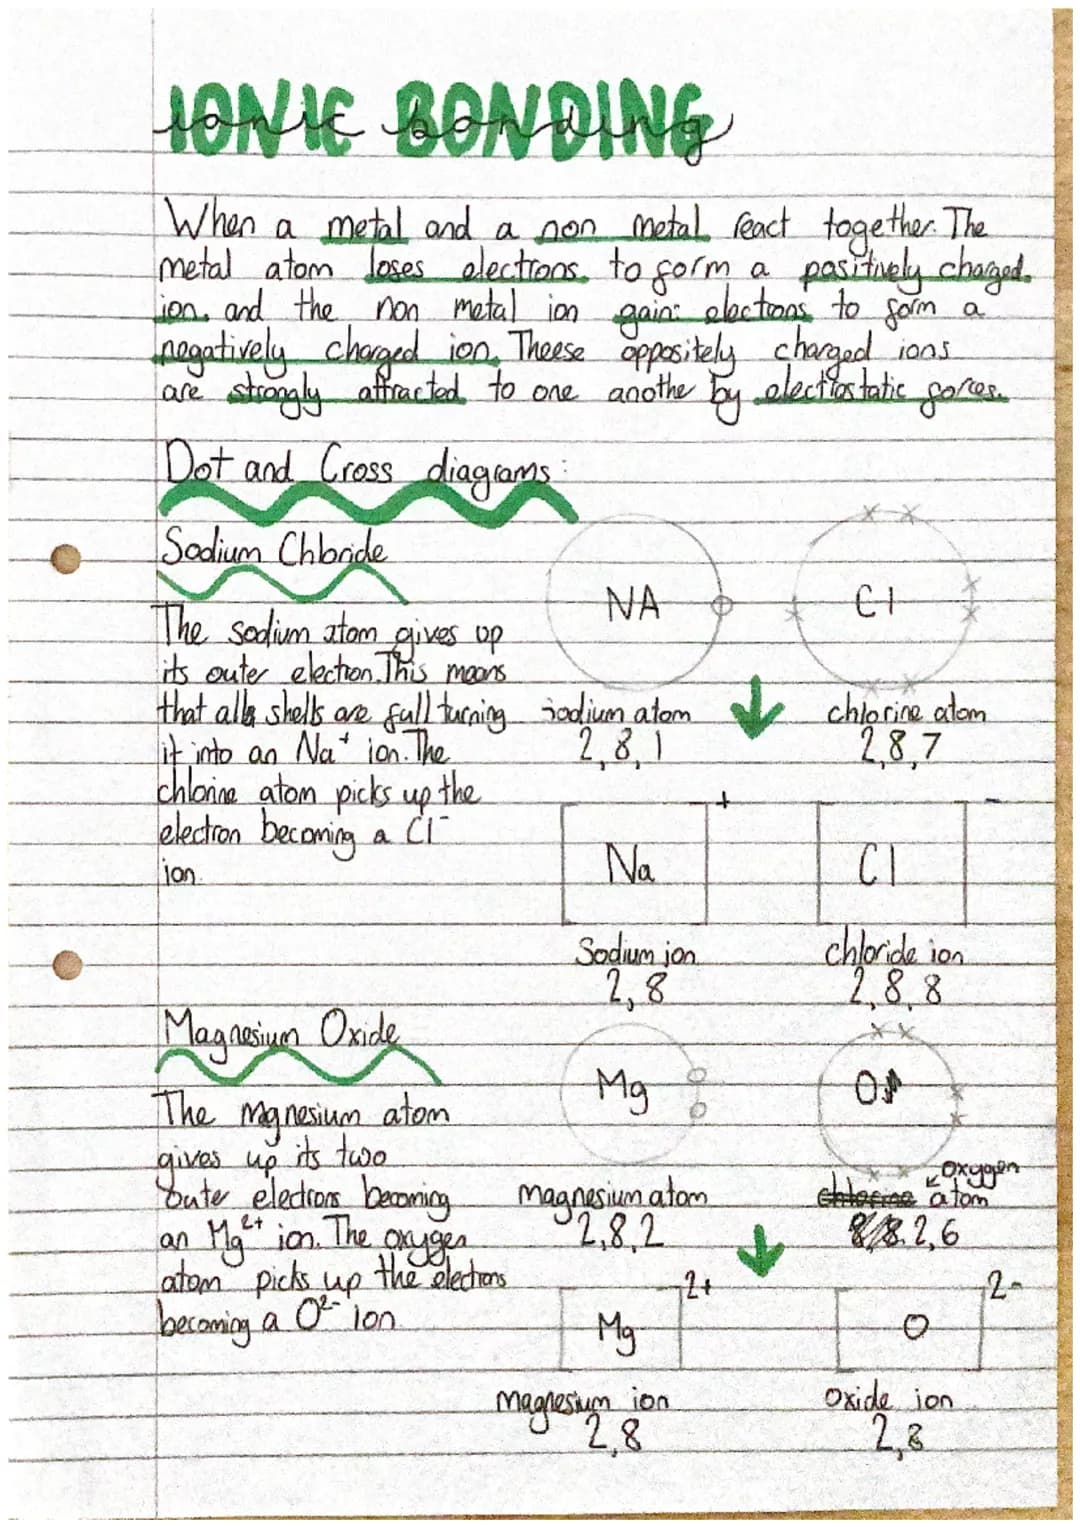 IONIC BONDING
ionic bonding
When a metal and a non metal react together. The
metal atom loses electrons to form a positively charged
ion and the non metal ion gains electrons to form a
negatively charged ion. Theese oppositely charged ions
are strongly attracted to one anothe by electrostatic forces.
Dot and Cross diagrams:
Sodium Chloride
NA
Cl
The sodium atom gives up
its outer electron. This means
that all shells are full turning
it into an Na⁺ ion. The
chlorine atom picks up the
electron becoming a Cl⁻
ion.
sodium atom
2,8,1
chlorine atom
2,8,7
Na
+
Cl
-
Sodium ion
2,8
chloride ion
2,8,8
Magnesium Oxide
Mg
O
The magnesium atom
gives up its two
outer electrons becoming
an Mg²⁺ ion. The oxygen
atom picks up the electrons
becoming a O²⁻ ion
magnesium atom
2,8,2
oxygen
chlorine atom
2,6
Mg
2+
O
2-
magnesium ion
2,8
oxide ion
2,8